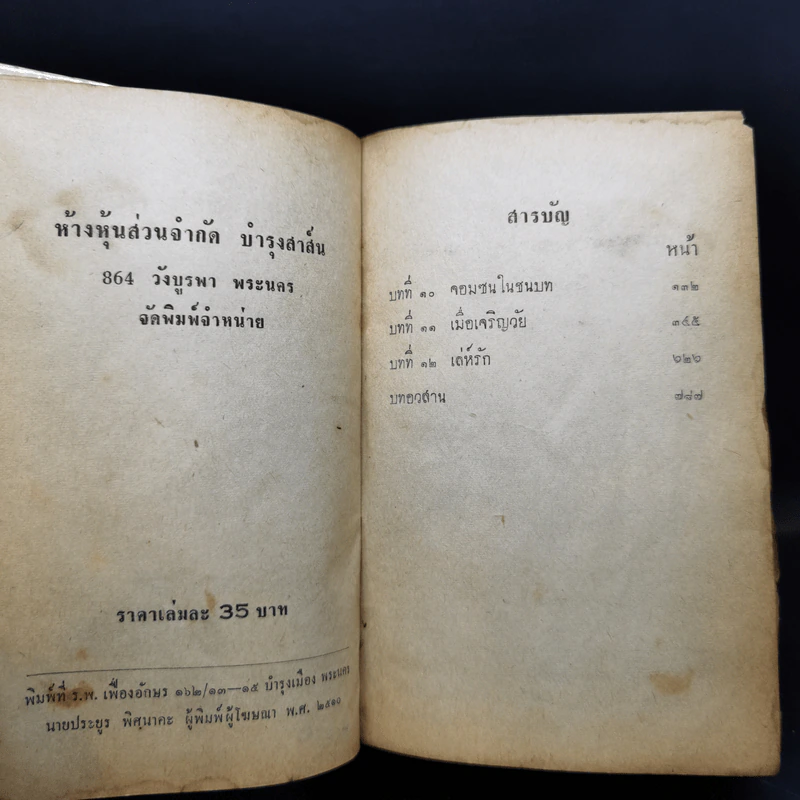 ห้างหุ้นส่วนจำกัด บำรุงสาส์น
864 วังบูรพา พระนคร
จัดพิมพ์จำหน่าย
ราคาเล่มละ 35 บาท
พิมพ์ที่ ร.พ. เฟื่องอักษร ๑๖๒/๑๓—๑๕ บำรุงเมือง พระนคร
นายประยูร พิศนาคะ ผู้พิมพ์ผู้โฆษณา พ.ศ. ๒๕๑๐
สารบัญ
หน้า
บทที่ ๑๐ จอมซนในชนบท ๑๓๒
บทที่ ๑๑ เมื่อเจริญวัย ๓๔๕
บทที่ ๑๒ เล่ห์รัก ๖๒๖
บทอวสาน ๗๘๗